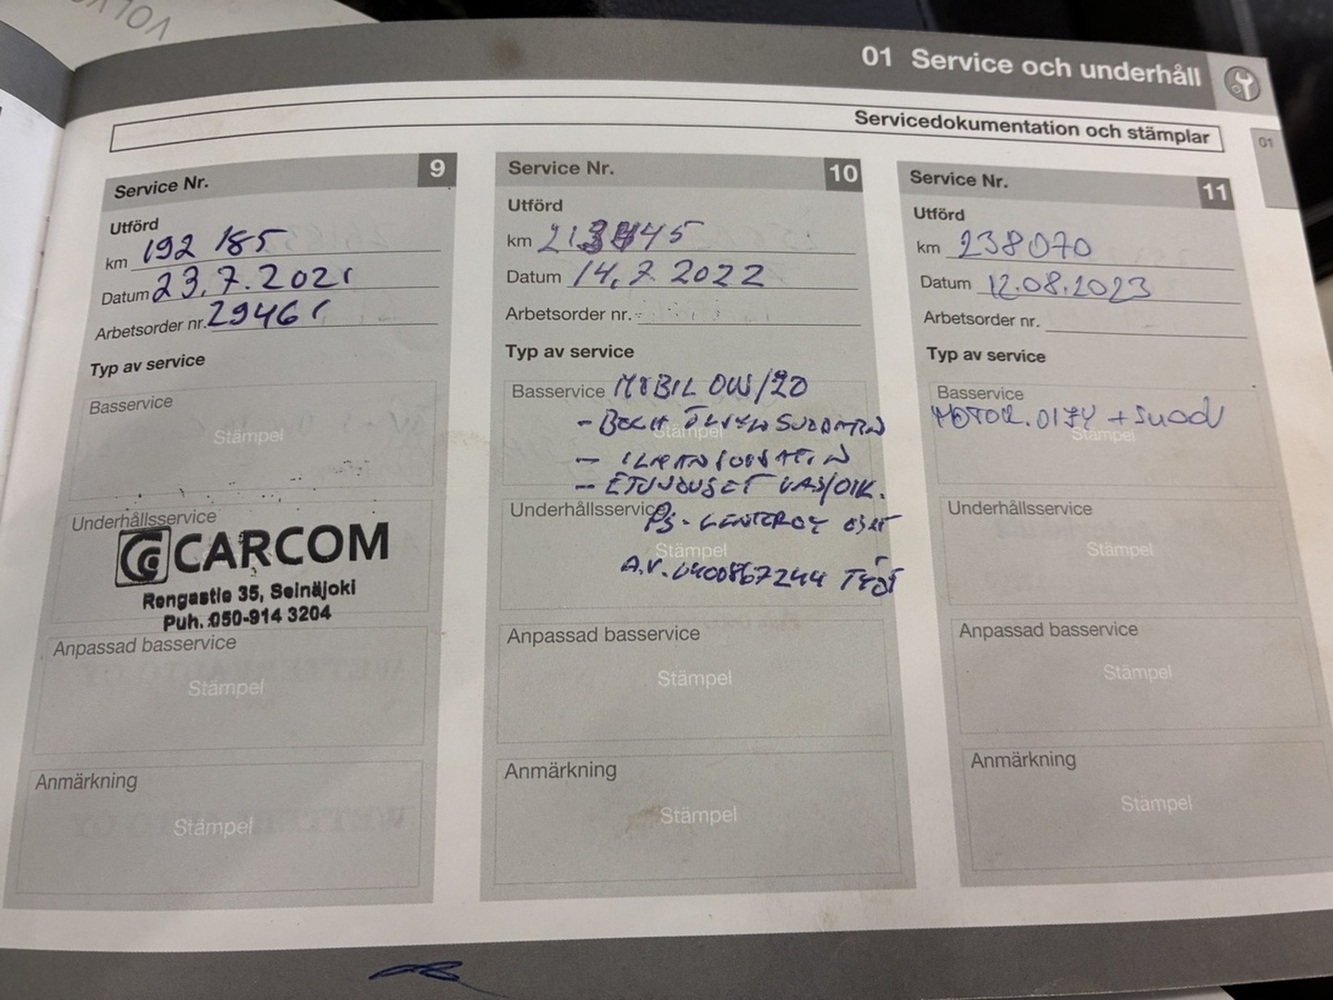 VOLV
01 Service och underhåll
Servicedokumentation och stämplar
01
Service Nr. 9
Utförd
km 192 185
Datum 23.7.2021
Arbetsorder nr. 29461
Typ av service
Basservice
Stämpel
Underhållsservice
CARCOM
Rengastie 35, Seinäjoki
Puh. 050-914 3204
Anpassad basservice
Stämpel
Anmärkning
Stämpel
Service Nr. 10
Utförd
km
Datum 14.7.2022
Arbetsorder nr.
Typ av service
Basservice MOBIL 0W/20
Stämpel
- ILMANSUODATIN
- ETUJOUSET VAS/OIK.
Underhållsservice
Stämpel
A.V. 0400867244
Anpassad basservice
Stämpel
Anmärkning
Stämpel
Service Nr. 11
Utförd
km 238070
Datum 12.08.2023
Arbetsorder nr.
Typ av service
Basservice
MOTOR.ÖLJY + SUOD
Stämpel
Underhållsservice
Stämpel
Anpassad basservice
Stämpel
Anmärkning
Stämpel